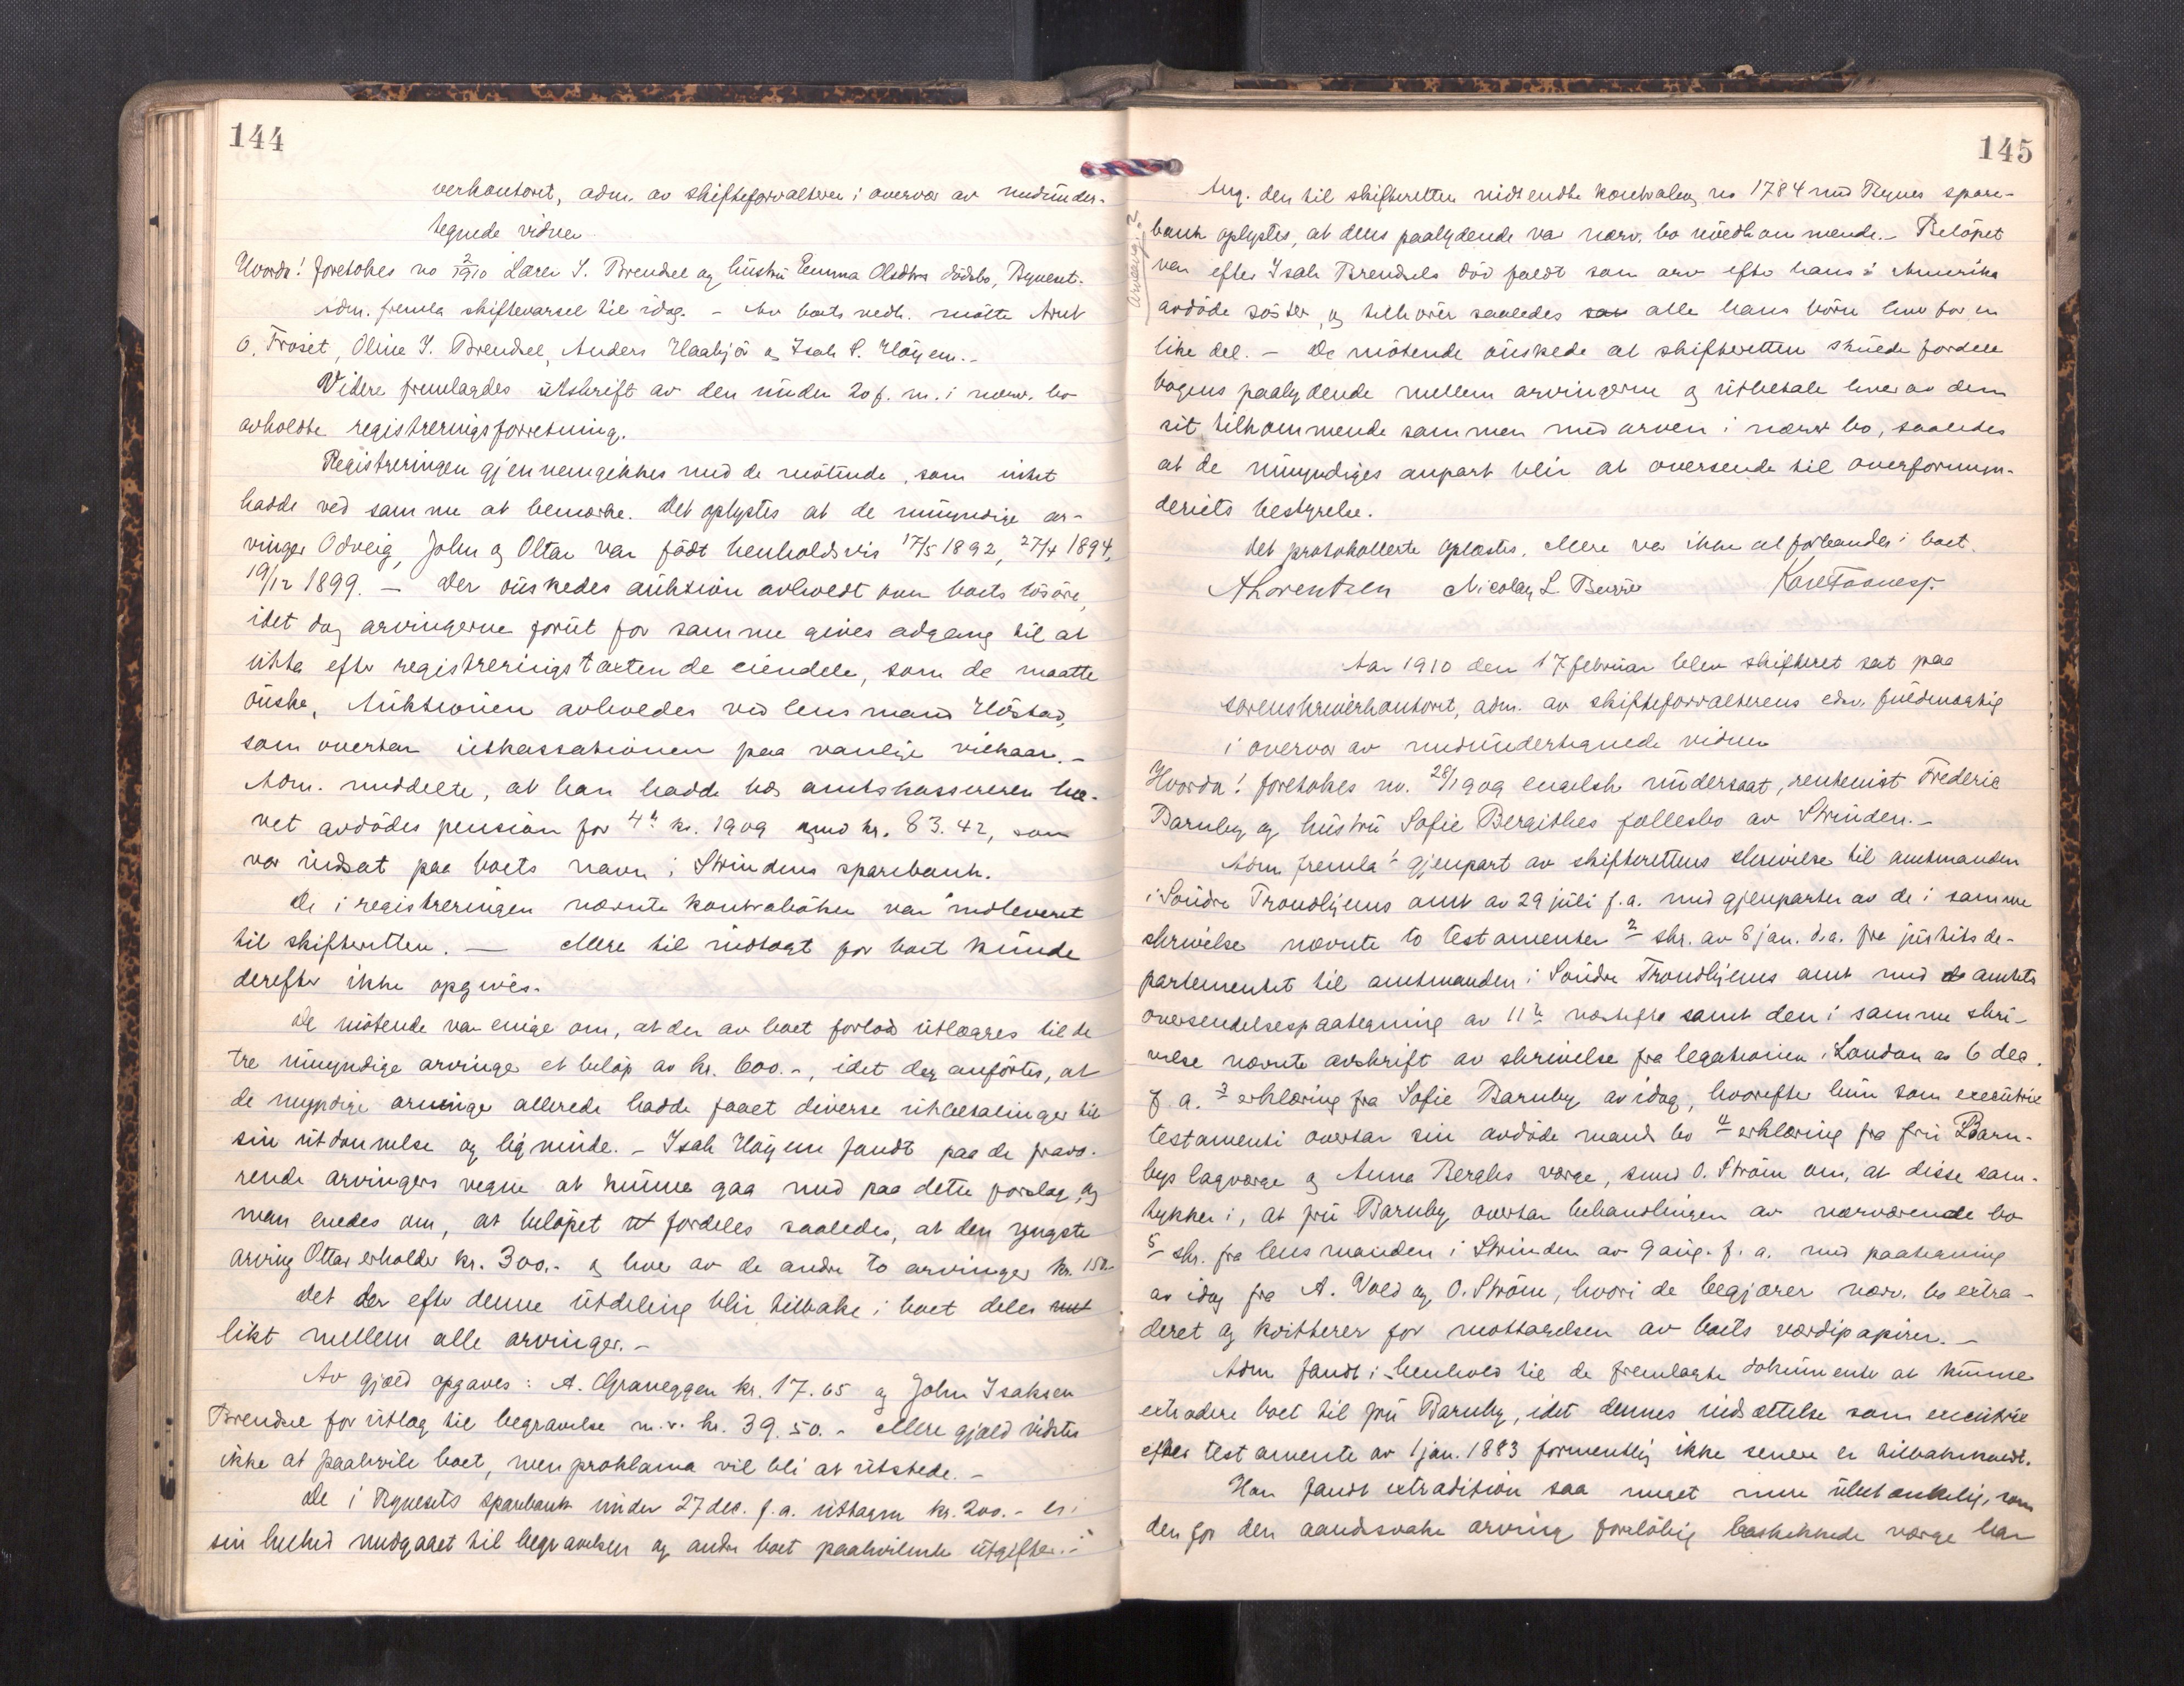 144
verkontoret, adm. av skifteforvalteren i overvær av medunder-
tegnede vidner
Hvorda! foretokes no 2/1910 Lærer I. Brendsel og hustru Emma Olsdtrs dødsbo, Byneset.
Adm. fremla skiftevarsel til idag. – Av boets vedk. møtte Arnt
O. Frøset, Oline I. Brendsel, Anders Haabjør og Isak P. Høyem. –
Videre fremlagdes utskrift av den under 20 f. m. i nærv. bo
avholdte registreringsforretning.
Registreringen gjennemgikkes med de møtende, som intet
hadde ved samme at bemærke. Det oplystes at de umyndige ar-
vinger Odveig, John og Ottar var født henholdsvis 17/5 1892, 27/4 1894,
19/12 1899. – Der ønskedes auktion avholdt over boets løsøre,
idet dog arvingerne forut for samme gives adgang til at
utta efter registreringstaxten de eiendele, som de maatte
ønske. Auktionen avholdes ved lensmand Høstad,
som overtar utkassationen paa vanlige vilkaar. –
Adm. meddelte, at han hadde hos amtskassereren hæ-
vet avdødes pension for 4de kv. 1909 med kr. 83.42, som
var indsat paa boets navn i Strindens sparebank.
De i registreringen nævnte kontrabøker var indleveret
til skifteretten. – Mere til indtægt for boet kunde
derefter ikke opgives.
De møtende var enige om, at der av boet forlods utlægges til de
tre umyndige arvinger et beløp av kr. 600.-, idet der anførtes, at
de myndige arvinger allerede hadde faaet diverse utbetalinger til
sin utdannelse og lignende. – Isak Høyem fandt paa de fravæ-
rende arvingers vegne at kunne gaa med paa dette forslag, og
man enedes om, at beløpet fordeles saaledes, at den yngste
arving Ottar erholder kr. 300.- og hver av de andre to arvinger kr. 150.-
Det der efter denne utdeling blir tilbake i boet deles
likt mellem alle arvinger. –
Av gjæld opgaves: A. Graneggen kr. 17.65 og John Isaksen
Brendsel for utlæg til begravelse m.v. kr. 39.50. – Mere gjæld vidstes
ikke at paahvile boet, men proklama vil bli at utstede. –
De i Bynesets sparebank under 27 dec. f.a. uttagne kr. 200.- er i
sin helhed medgaaet til begravelsen og andre boet paahvilende utgifter. –
145
Ang. den til skifteretten indsendte kontrabog no 1784 med Bynes spare-
bank oplystes, at dens paalydende var nærv. bo uvedkommende. – Beløpet
var efter Isak Brendsels død faldt som arv efter hans i Amerika
avdøde søster, og tilhører saaledes alle hans børn hver for en
like del. – De møtende ønskede at skifteretten skulde fordele
bogens paalydende mellem arvingerne og utbetale hver av dem
sit tilkommende sammen med arven i nærv bo, saaledes
at de umyndiges anpart blir at oversende til overformyn-
deriets bestyrelse.
Det protokollerte oplæstes. Mere var ikke at forhandle i boet.
A Lorentzen Nicolay L. Buvre
Aar 1910 den 17 februar blev skifteret sat paa
sorenskriverkontoret, adm. av skifteforvalterens edsv. fuldmægtig
i overvær av medundertegnede vidner
Hvorda! foretokes no. 28/1909 engelsk undersaat, rentenist Frederic
Barnby og hustru Sofie Bergithes fællesbo av Strinden. –
Adm. fremla 1 gjenpart av skifterettens skrivelse til amtmanden
i Søndre Trondhjems amt av 29 juli f.a. med gjenparter av de i samme
skrivelse nævnte to testamenter 2 skr. av 8 jan. d.a. fra justitsde-
partementet til amtmanden i Søndre Trondhjems amt med amtets
oversendelsespaategning av 11te næstefter samt den i samme skri-
velse nævnte avskrift av skrivelse fra legationen i London av 6 dec.
f. a. 3 erklæring fra Sofie Barnby av idag, hvorefter hun som executrix
testamenti overtar sin avdøde mands bo 4 erklæring fra fru Barn-
bys lagværge og Anna Berghs værge, smed O. Strøm om, at disse sam-
tykker i, at fru Barnby overtar behandlingen av nærværende bo
5 skr. fra lensmanden i Strinden av 9 aug. f. a. med paategning
av idag fra A. Vold og O. Strøm, hvori de begjærer nærv. bo extra-
deret og kvitterer for mottagelsen av boets værdipapirer. –
Adm fandt i henhold til de fremlagte dokumenter at kunne
extradere boet til fru Barnby, idet dennes indsættelse som executrix
efter testamente av 1 jan. 1883 formentlig ikke senere er tilbakekaldt.
Han fandt extradition saa meget mere ubetænkelig, som
den for den aandssvake arving foreløbig beskikkede værge har